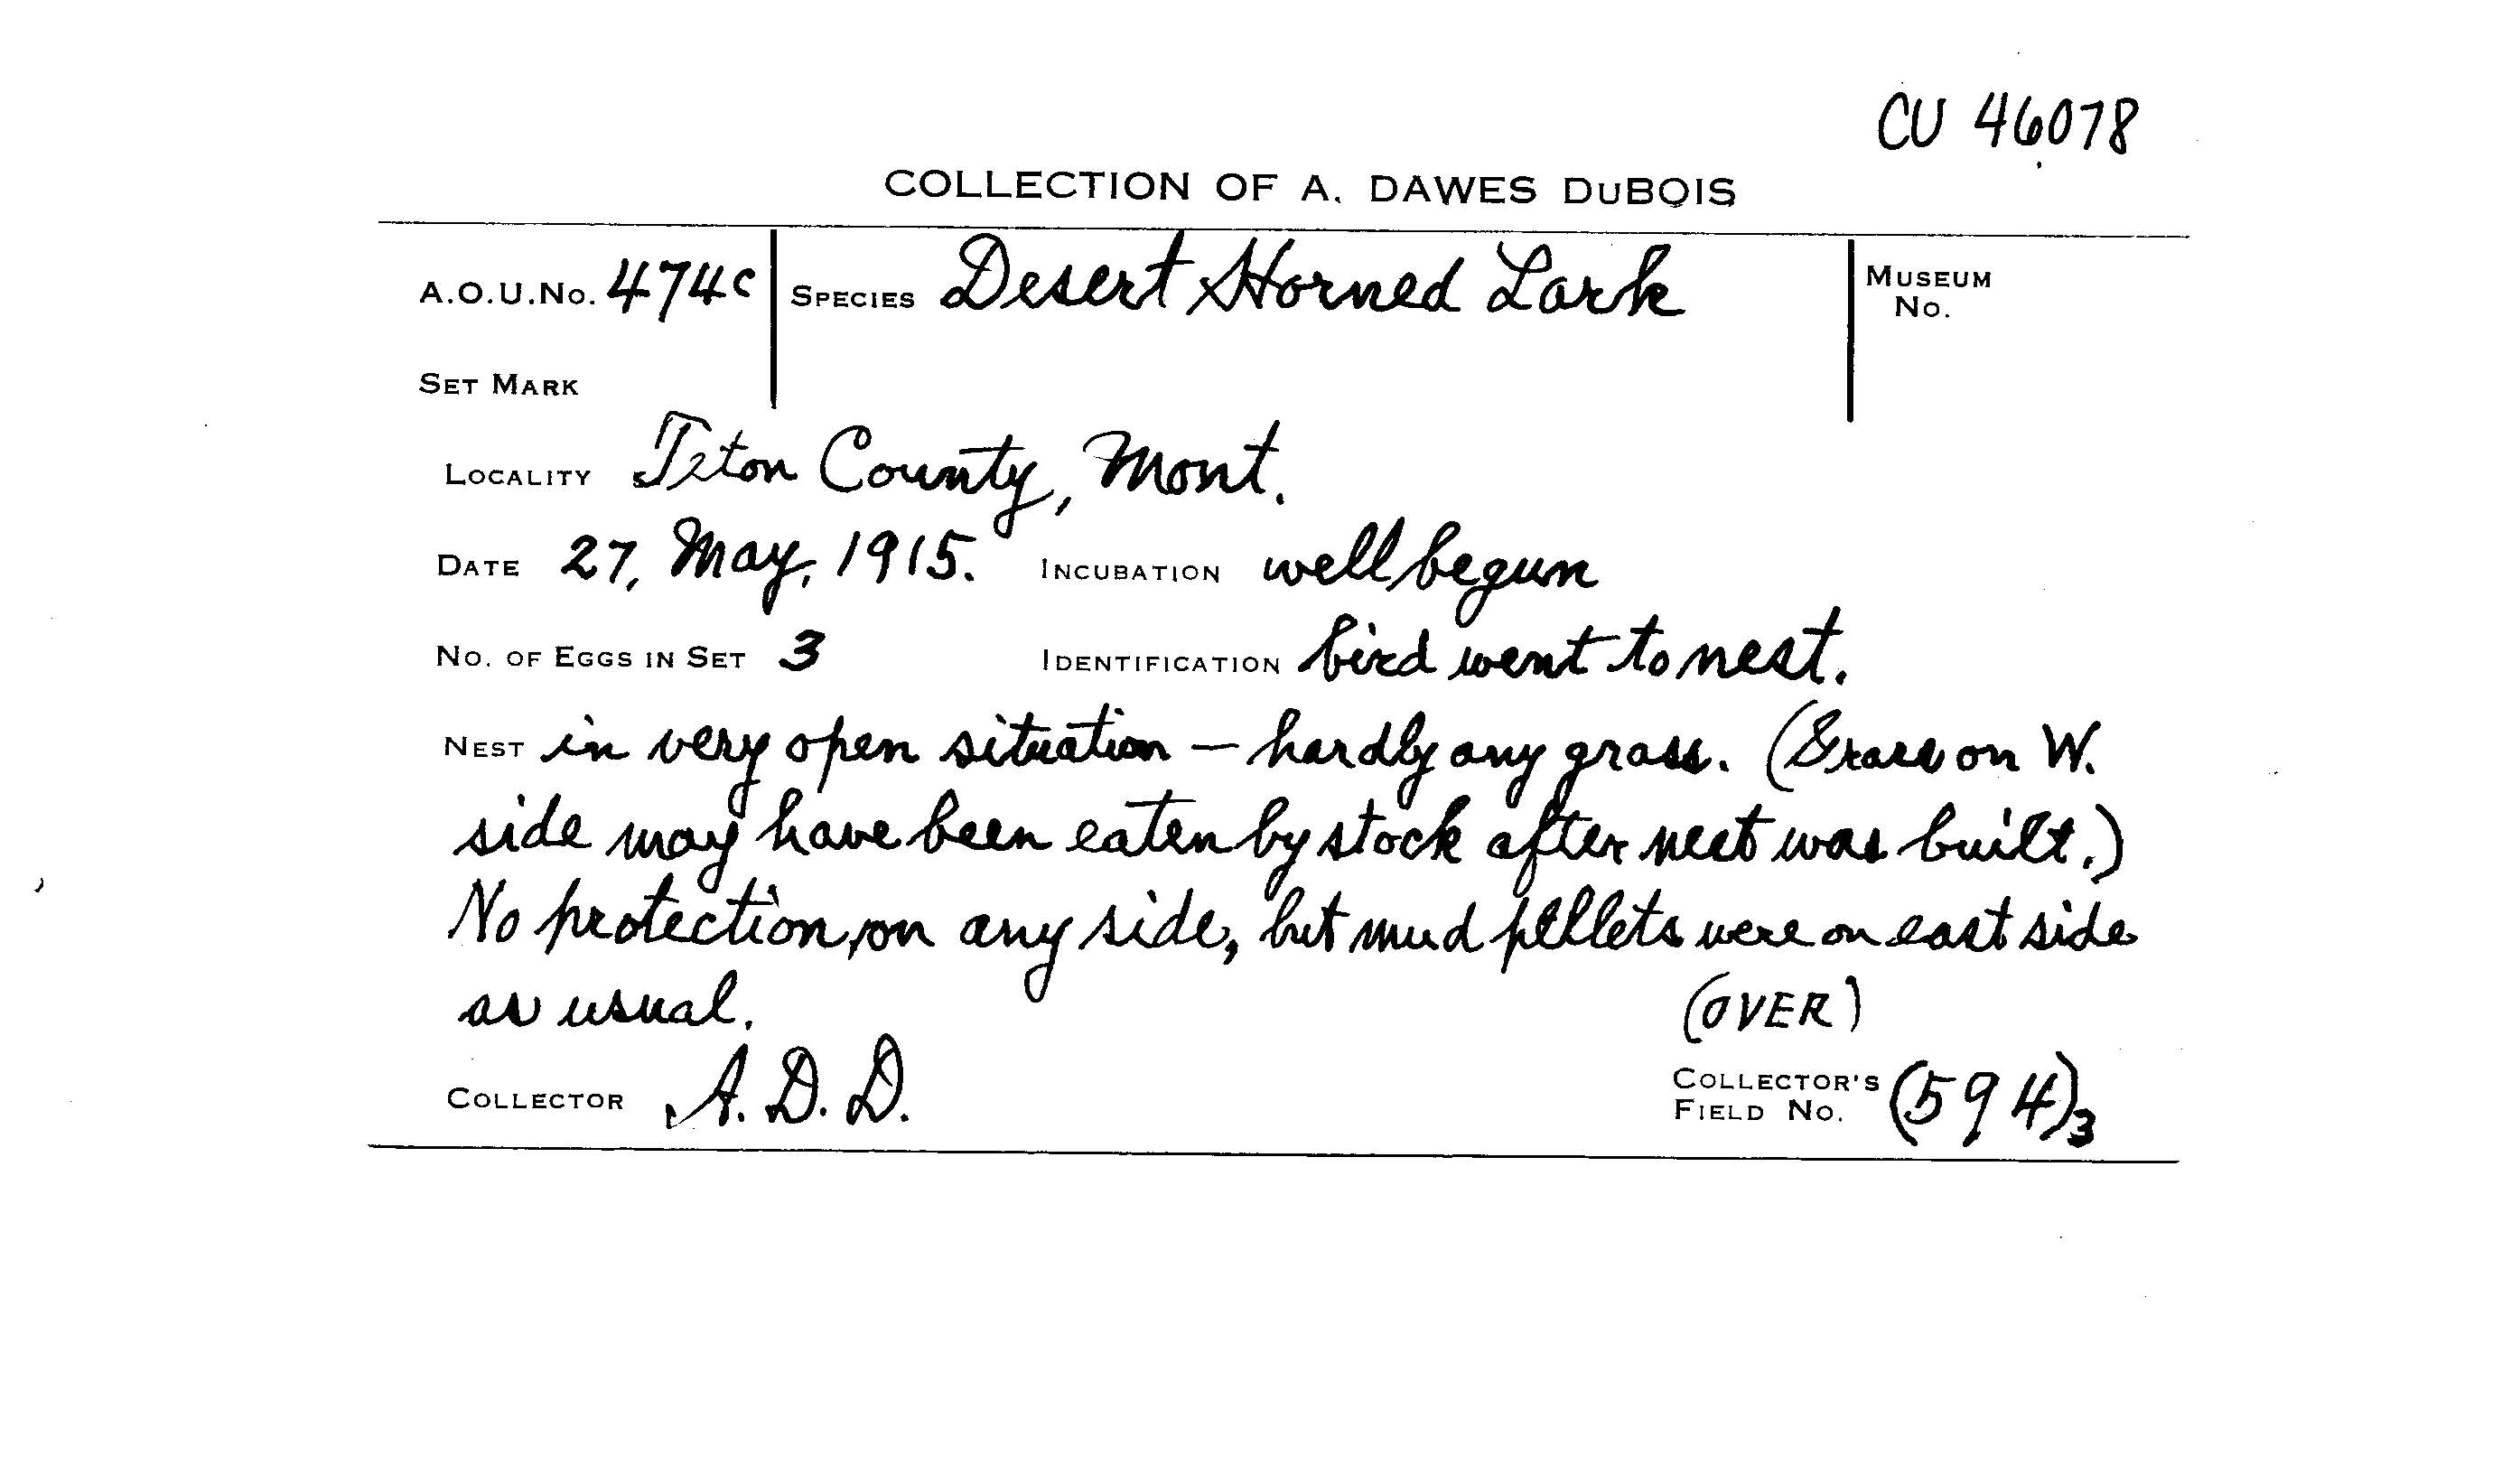 CU 46078
COLLECTION OF A. DAWES DuBOIS
A.O.U.No. 474c SPECIES Desert Horned Lark MUSEUM No.
SET MARK
LOCALITY Teton County, Mont.
DATE 27, May, 1915. INCUBATION well begun
NO. OF EGGS IN SET 3 IDENTIFICATION bird went to nest.
NEST in very open situation — hardly any grass. (Grass on W.
side may have been eaten by stock after nest was built.)
No protection, on any side, but mud pellets were on east side
as usual. (OVER)
COLLECTOR A. D. D. COLLECTOR'S FIELD No. (594)3